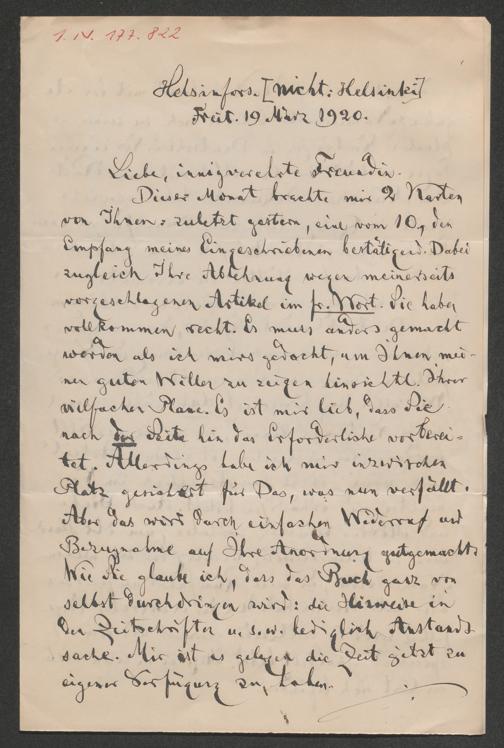 1. N. 177.822
Helsinfors. [nicht: Helsinki]
Freit. 19 März 1920.
Liebe, innigverehrte Freundin.
Dieser Monat brachte mir 2 Karten
von Ihnen: zuletzt gestern, eine vom 10, den
Empfang meines Eingeschriebenen bestätigend. Dabei
zugleich Ihre Ablehnung wegen meinerseits
vorgeschlagenen Artikel im fr. Wort. Sie haben
vollkommen recht. Es muss anders gemacht
werden als ich mirs gedacht, um Ihnen mei-
nen guten Willen zu zeigen hinsichtl. Ihrer
vielfachen Plane. Es ist mir lieb, dass Sie
nach der Seite hin das Erforderliche vorberei-
tet. Allerdings habe ich mir inzwischen
Platz gesichert für Das, was nun verfällt.
Aber das wird durch einfachen Widerruf und
Bezugnahme auf Ihre Anordnung gutgemacht.
Wie Sie glaube ich, dass das Buch ganz von
selbst durchdringen wird: die Hinweise in
den Zeitschriften u.s.w. lediglich Anstands-
sache. Mir ist es gelegen die Zeit jetzt zu
eigener Verfügung zu haben.